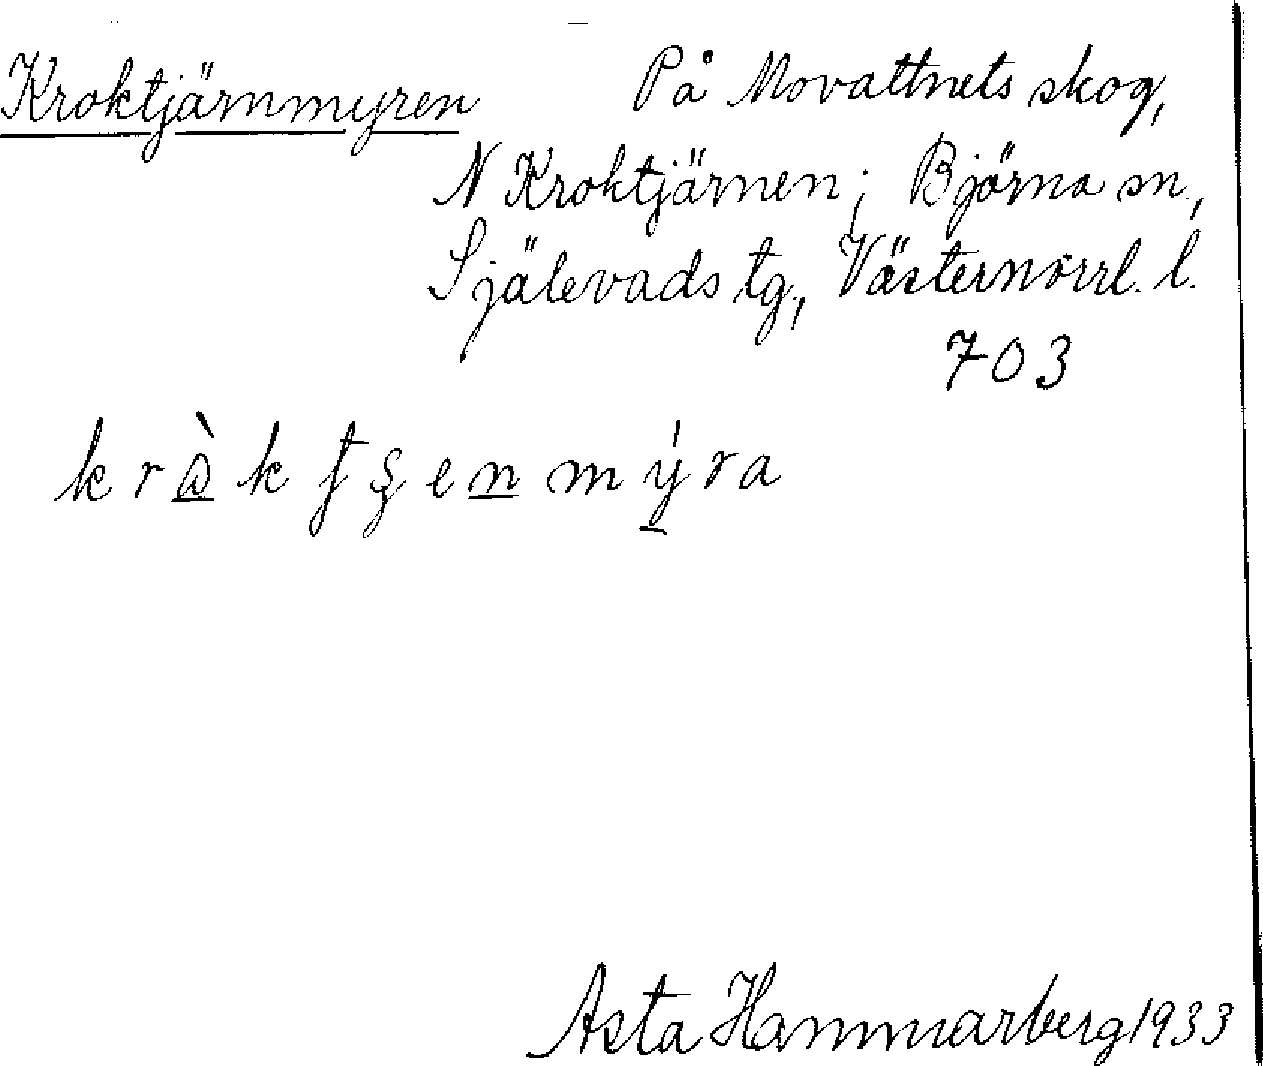 Kroktjärnmyren På Movattnets skog,
N Kroktjärnen; Björna sn,
Själevads tg, Västernorrl. l.
703
Asta Hammarberg 1933